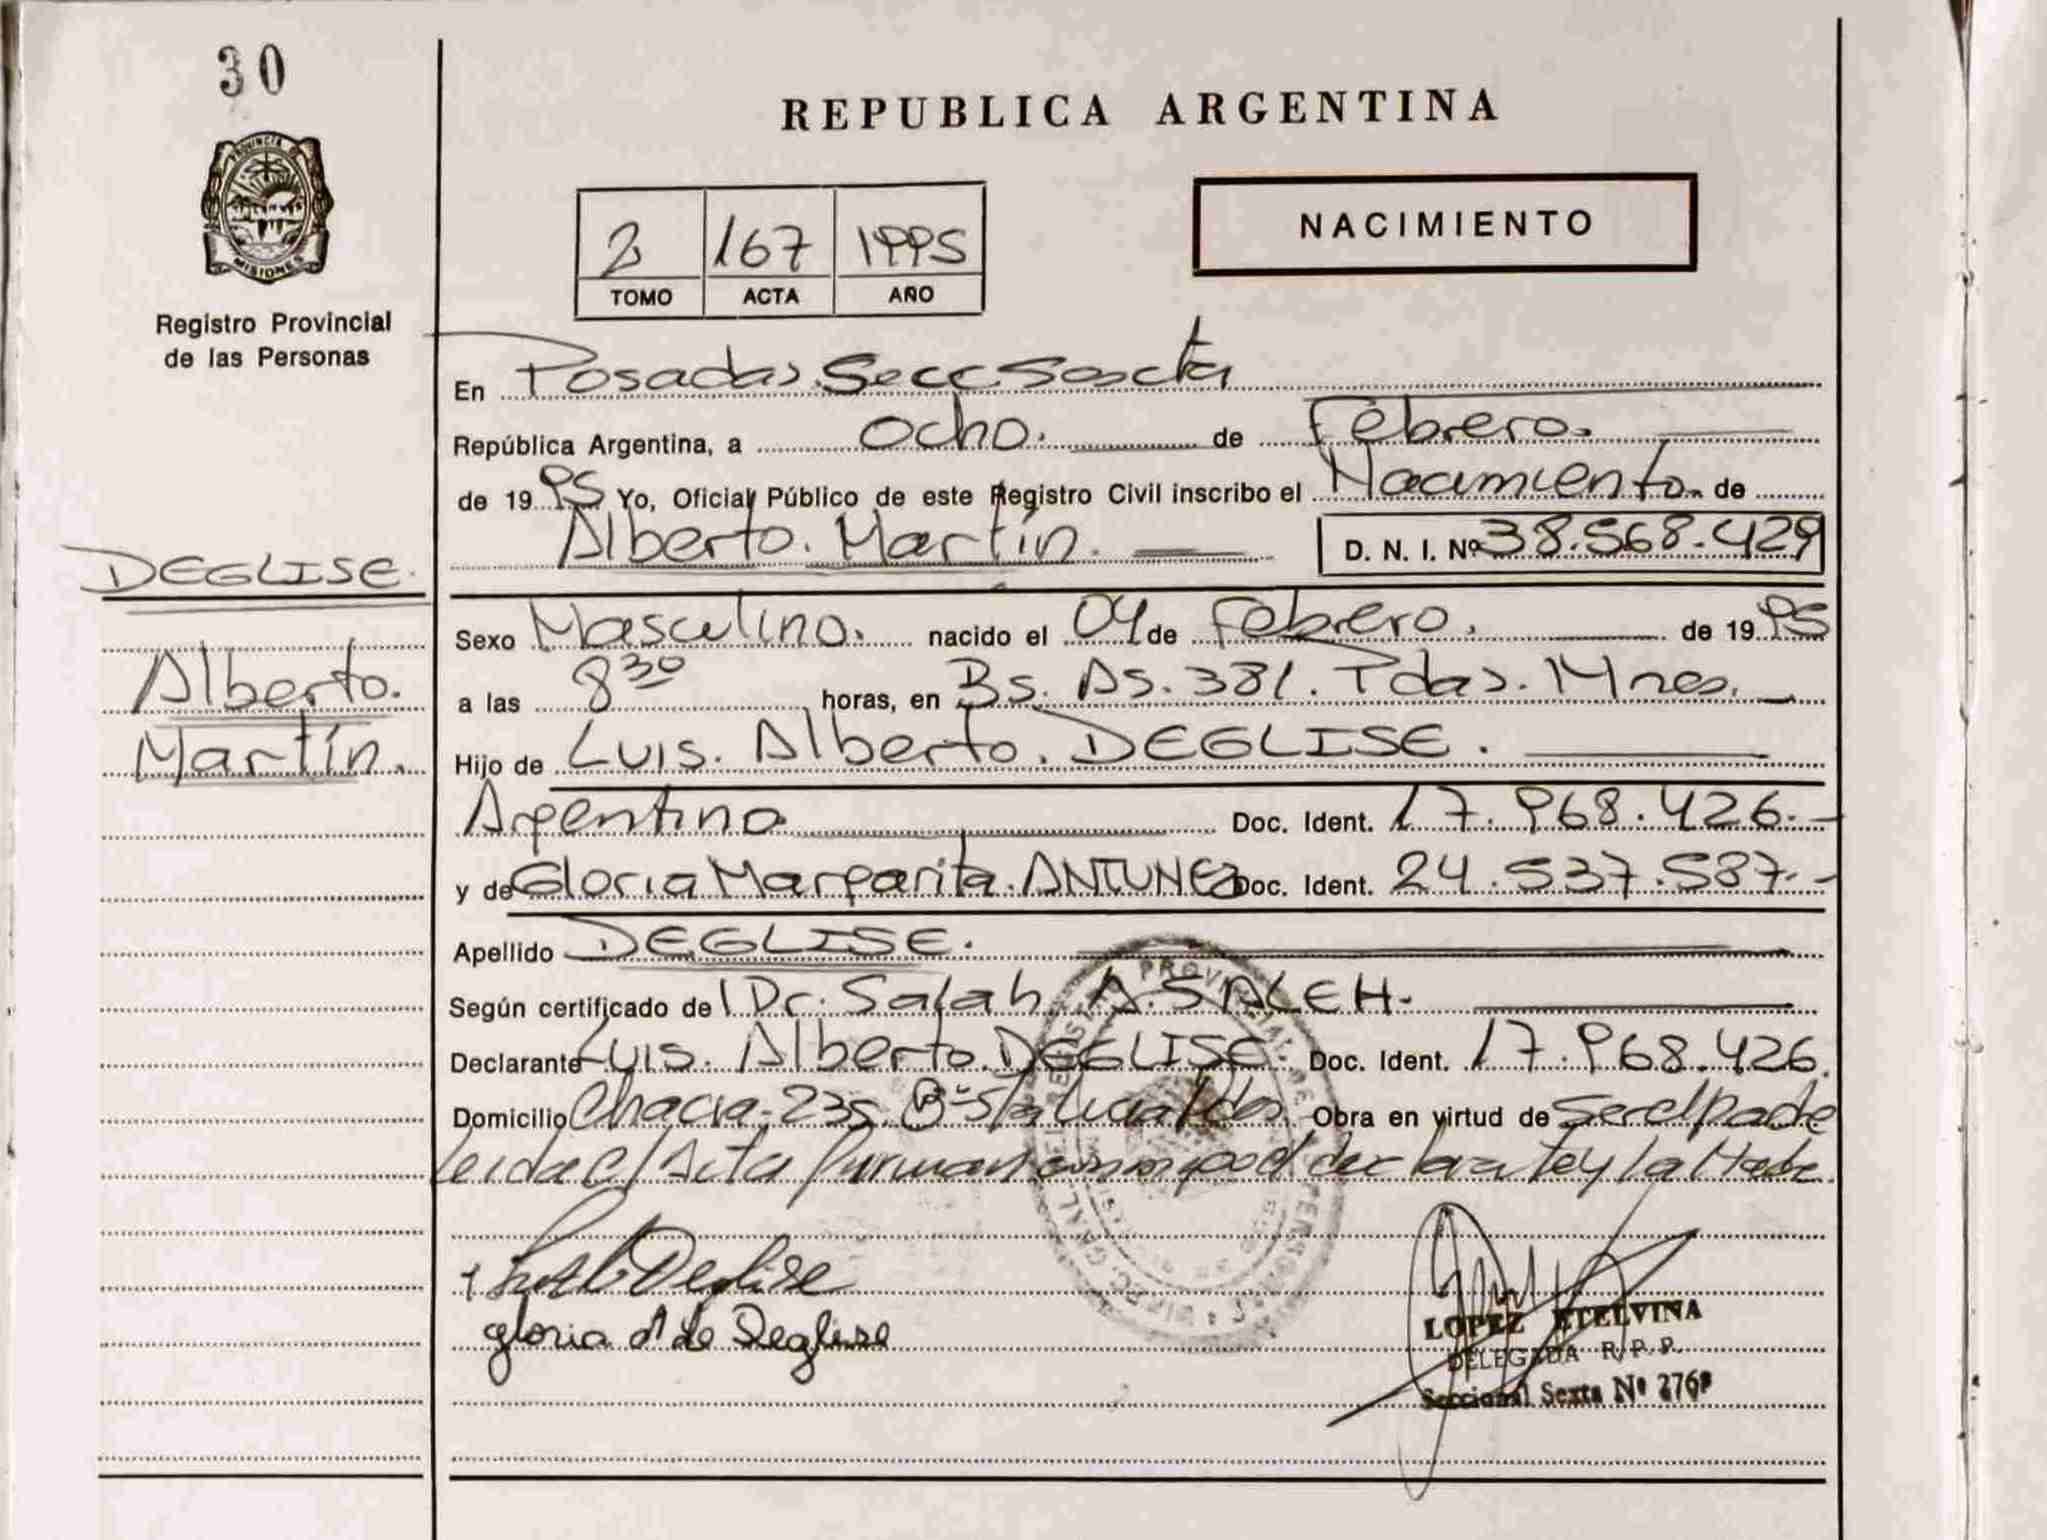 30
PROVINCIA DE
MISIONES
Registro Provincial
de las Personas
DEGLISE.
Alberto.
Martín.
REPUBLICA ARGENTINA
NACIMIENTO
2 167 1995
TOMO ACTA AÑO
En Posadas. Secc. Sexta
República Argentina, a Ocho. de Febrero.
de 1995 Yo, Oficial Público de este Registro Civil inscribo el Nacimiento. de
Alberto. Martín. D. N. I. Nº 38.568.429
Sexo Masculino. nacido el 04 de Febrero. de 1995
a las 8 30 horas, en Bs. As. 381. Pdas. Mnes.
Hijo de Luis. Alberto. DEGLISE.
Argentino Doc. Ident. 17.968.426.-
y de Gloria Margarita. ANTUNEZ Doc. Ident. 24.537.587.-
Apellido DEGLISE.
Según certificado de Dr. Salah A. SALEH.
Declarante Luis. Alberto. DEGLISE Doc. Ident. 17.968.426.
Domicilio Chacra. 235. Bº Sta Lucia Pdas Obra en virtud de ser el padre
leida el Acta firman conmigo el declarante y la Madre.
Deglise
gloria A de Deglise
LOPEZ ETELVINA
DELEGADA R. P. P.
Seccional Sexta Nº 276